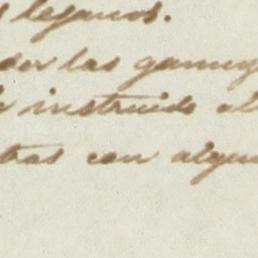 leganos.
der las gamuy
instruido al
tras con algun